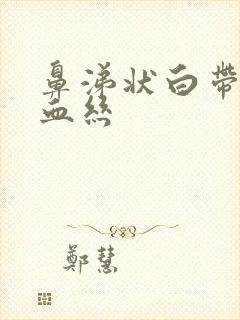 鼻涕状白带
血丝
郑慧